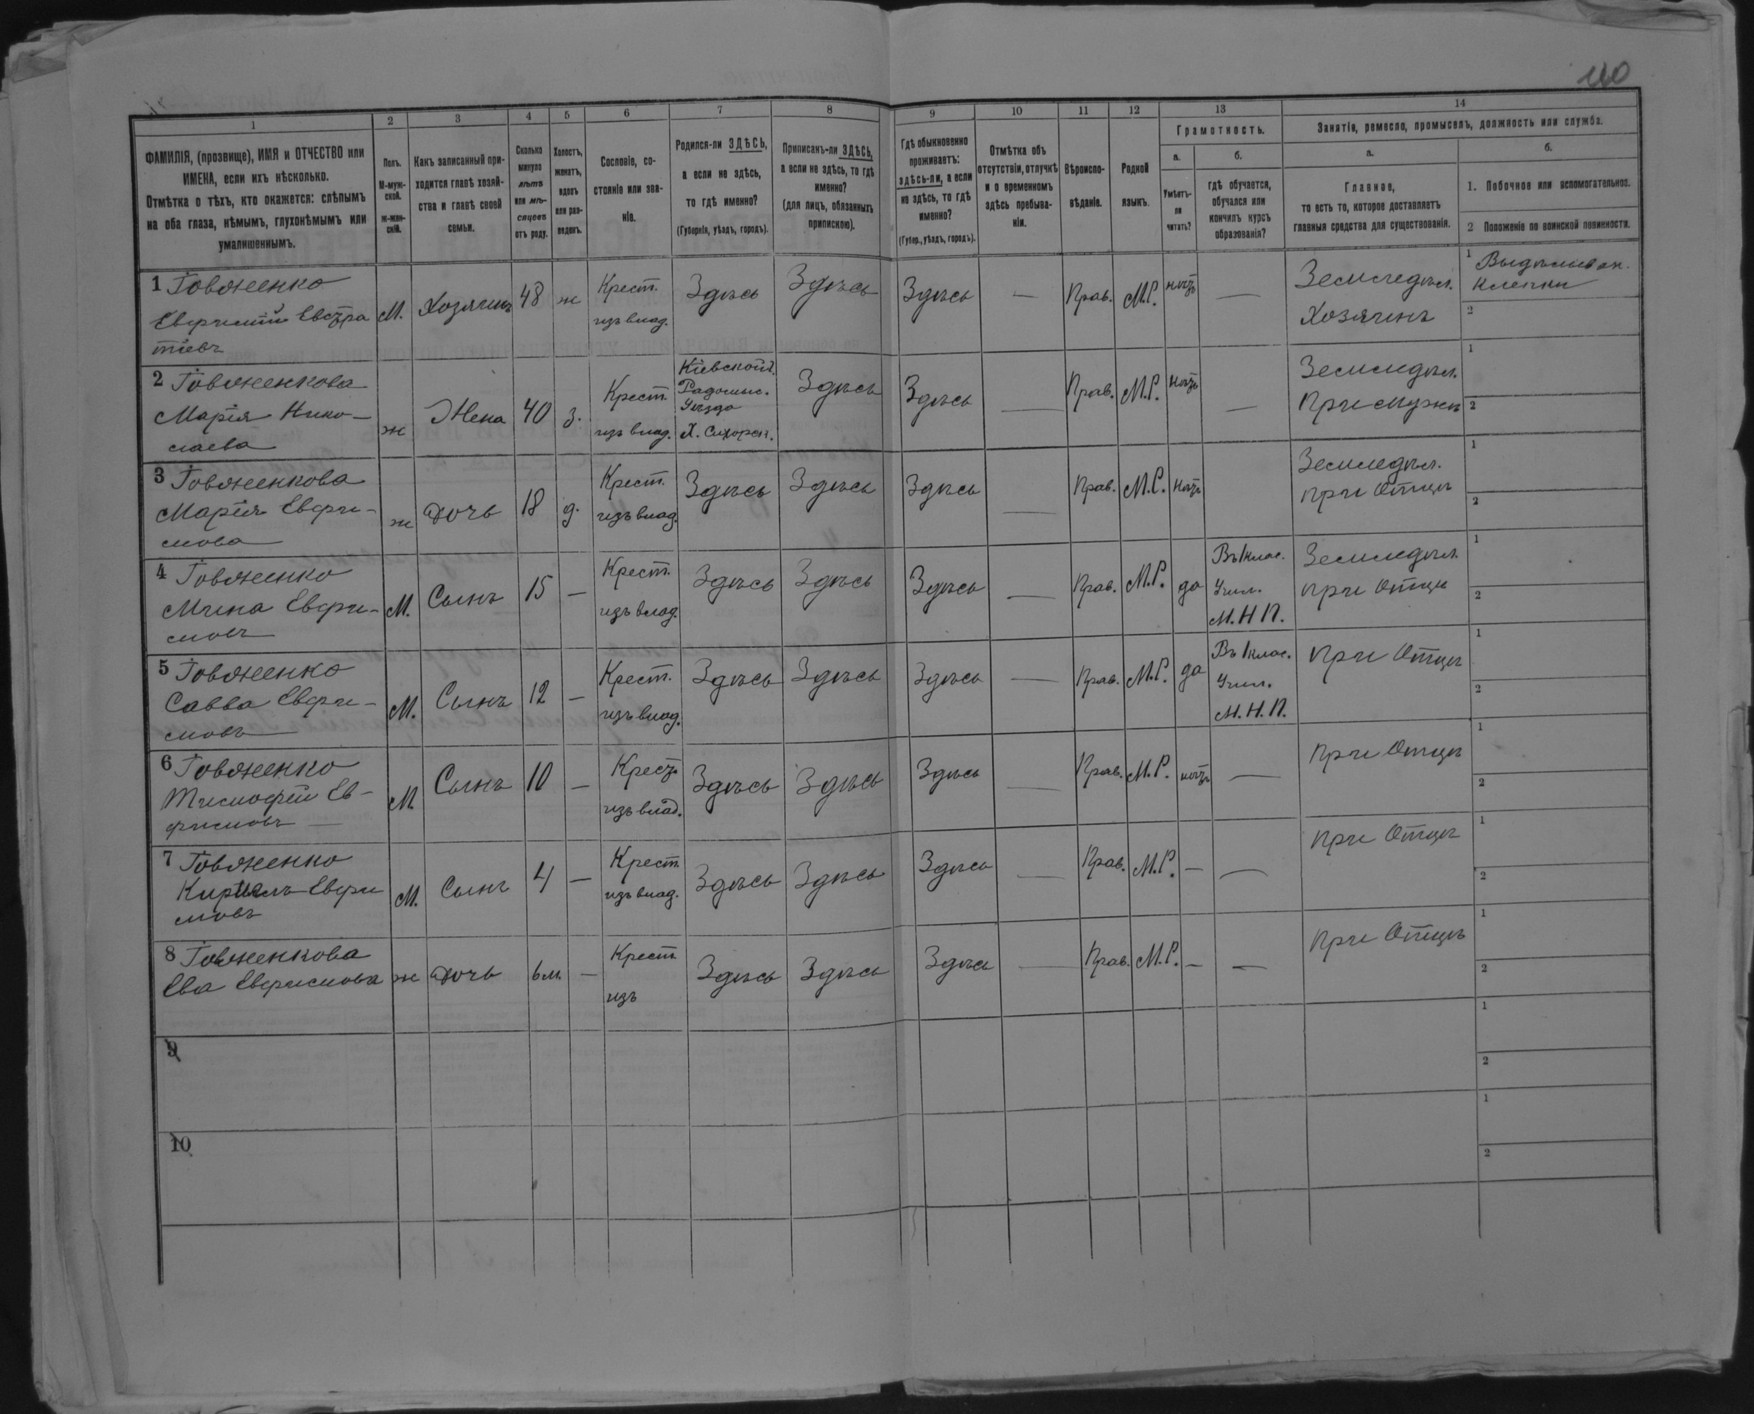 110
1 2 3 4 5 6 7 8 9 10 11 12 13 14
ФАМИЛІЯ, (прозвище), ИМЯ и ОТЧЕСТВО или ИМЕНА, если ихъ нѣсколько.
Отмѣтка о тѣхъ, кто окажется: слѣпымъ на оба глаза, нѣмымъ, глухонѣмымъ или умалишеннымъ.
Полъ. М-мужской. Ж-женскій.
Какъ записанный приходится главѣ хозяйства и главѣ своей семьи.
Сколько минуло лѣтъ или мѣсяцевъ отъ роду.
Холостъ, женатъ, вдовъ или разведенъ.
Сословіе, состояніе или званіе.
Родился-ли ЗДѢСЬ, а если не здѣсь, то гдѣ именно?
(Губернія, уѣздъ, городъ).
Приписанъ-ли ЗДѢСЬ, а если не здѣсь, то гдѣ именно?
(для лицъ, обязанныхъ припискою).
Гдѣ обыкновенно проживаетъ: здѣсь-ли, а если не здѣсь, то гдѣ именно?
(Губер., уѣздъ, городъ).
Отмѣтка объ отсутствіи, отлучкѣ и о временномъ здѣсь пребываніи.
Вѣроисповѣданіе.
Родной языкъ.
Грамотность.
а. Умѣетъ-ли читать?
б. гдѣ обучается, обучался или кончилъ курсъ образованія?
Занятія, ремесло, промыселъ, должность или служба.
а. Главное, то есть то, которое доставляетъ главныя средства для существованія.
б. 1. Побочное или вспомогательное.
2 Положеніе по воинской повинности.
1 Говженко Евфимій Евстратіевъ М. Хозяинъ 48 ж Крест. изъ влад. Здѣсь Здѣсь Здѣсь — Прав. М.Р. нѣтъ — Земледѣл. Хозяинъ 1 клепки 2
2 Говженкова Марія Николаева ж Жена 40 з. Крест изъ влад. Кіевской г. Радомыс. Уѣзда Здѣсь Здѣсь — Прав. М.Р. нѣтъ — Земледѣл. При мужѣ 1 2
3 Говженкова Марія Евфимова ж дочь 18 д. Крест. изъ влад. Здѣсь Здѣсь Здѣсь — Прав. М.Р. нѣтъ Земледѣл. при Отцѣ 1 2
4 Говженко Мина Евфимовъ М. Сынъ 15 — Крест. изъ влад. Здѣсь Здѣсь Здѣсь — Прав. М.Р. да Въ 1 клас. Учил. М.Н.П. Земледѣл. при Отцѣ 1 2
5 Говженко Савва Евфимовъ М. Сынъ 12 — Крест. изъ влад. Здѣсь Здѣсь Здѣсь — Прав. М.Р. да Въ 1 клас. Учил. М.Н.П. При Отцѣ 1 2
6 Говженко Тимофей Евфимовъ — М Сынъ 10 — Крест. изъ влад. Здѣсь Здѣсь Здѣсь — Прав. М.Р. нѣтъ — При Отцѣ 1 2
7 Говженко Кирилъ Евфимовъ М. Сынъ 4 — Крест. изъ влад. Здѣсь Здѣсь Здѣсь — Прав. М.Р. — — При Отцѣ 1 2
8 Говженкова Ева Евфимова ж дочь 6 м. — Крест изъ Здѣсь Здѣсь Здѣсь — Прав. М.Р. — — При Отцѣ 1 2
9 1 2
10 1 2